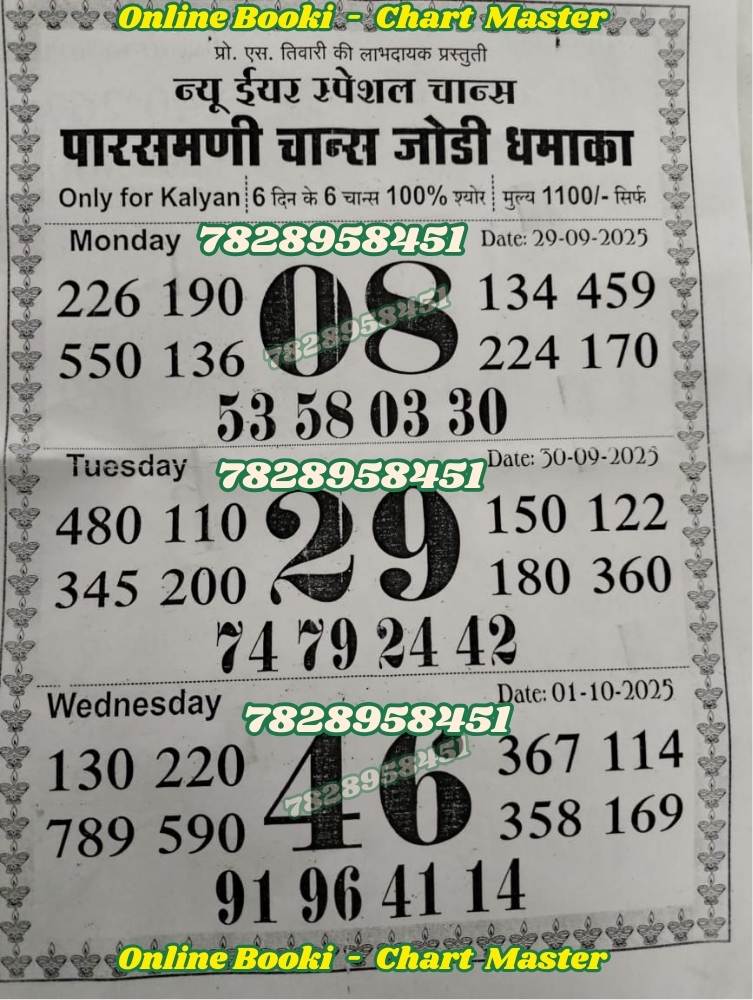 Online Booki - Chart Master
प्रो. एस. तिवारी की लाभदायक प्रस्तुती
न्यू ईयर स्पेशल चान्स
पारसमणी चान्स जोडी धमाका
Only for Kalyan 6 दिन के 6 चान्स 100% श्योर मुल्य 1100/- सिर्फ
Monday 7828958451 Date: 29-09-2025
226 190 08 134 459
7828958451
550 136 224 170
53 58 03 30
Tuesday 7828958451 Date: 30-09-2025
480 110 29 150 122
345 200 180 360
74 79 24 42
Wednesday 7828958451 Date: 01-10-2025
130 220 46 367 114
7828958451
789 590 358 169
91 96 41 14
Online Booki - Chart Master